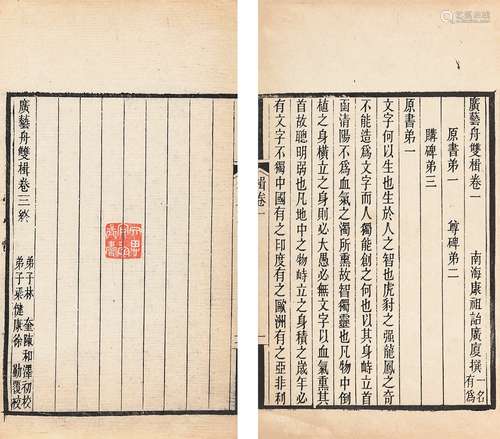 廣藝舟雙楫卷一　南海康祖詒廣廈撰一名有爲
原書弟一　尊碑弟二
購碑弟三
原書弟一
文字何以生也生於人之智也虎豹之强龍鳳之奇
不能造爲文字而人獨能創之何也以其身峙立首
面清陽不爲血氣之濁所熏故智獨靈也凡物中倒
植之身橫立之身則必大愚必無文字以血氣熏其
首故聰明弱也凡地中之物峙立之身積之歲年必
有文字不獨中國有之印度有之歐洲有之亞非利
楫卷一
一
廣藝舟雙楫卷三終
弟子林　奎陳和澤初校
弟子梁健康徐　勤覆校